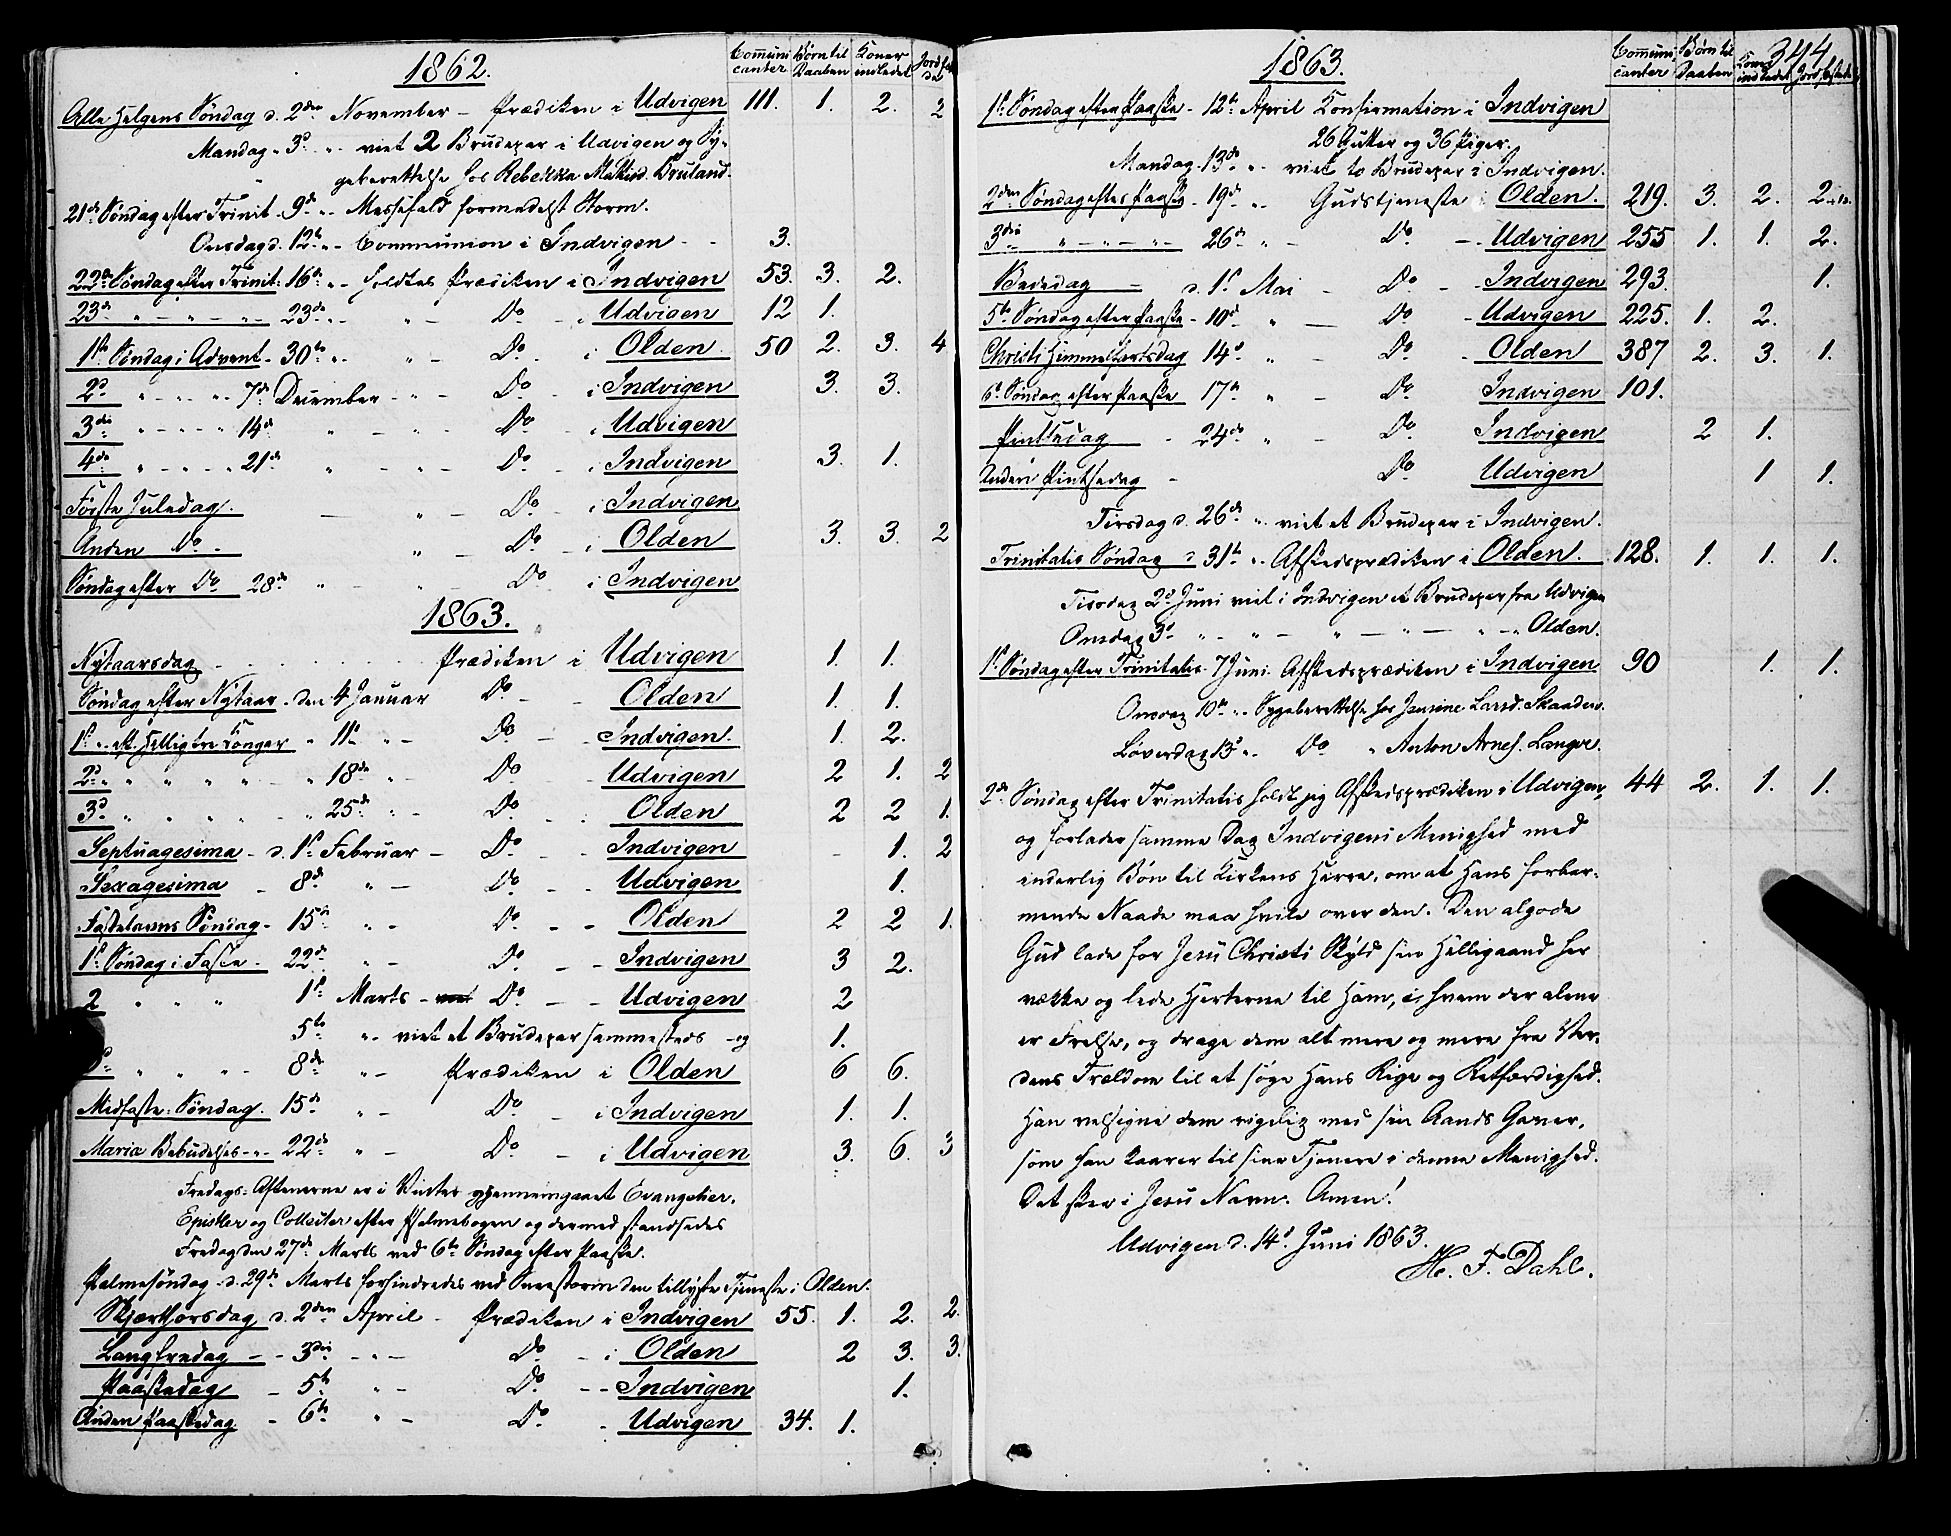 1862.
Communicanter Børn til Daaben Koner indledet Jordfæstede
Alle Helgens Søndag d. 2den November - Prædiken i Udvigen 111. 1. 2. 2
Mandag " 3d " viet 2 Brudepar i Udvigen og Sy-
geberettelse hos Rebekka Mathisd. Bruland.
21de Søndag efter Trinit. 9de " Messefald formedelst Storm.
Onsdag d. 12te " Communion i Indvigen - - 3.
22de Søndag efter Trinit: 16de " holdtes Prædiken i Indvigen 53. 3. 2.
23de " - " - " - 23de " " - Do - i Udvigen 12 1.
1ste Søndag i Advent - 30te " " - Do - i Olden 50 2. 3. 4
2d " - " - " 7de December - " - Do - i Indvigen 3. 3.
3die " - " - " 14de " - " - Do - i Udvigen
4de " - " - " 21de " - " - Do - i Indvigen 3. 1.
Første Juledag. - " - Do - i Indvigen
Anden Do - " - Do - i Olden 3. 3. 2
Søndag efter Do 28de " - " Do - i Indvigen
1863.
Nytaarsdag - - - - - Prædiken i Udvigen 1. 1.
Søndag efter Nytaar - den 4 Januar Do - - Olden 1. 1.
1ste " eft. Hellig tre Konger " 11te " - Do - - Indvigen 1. 2.
2d " " " " " - " 18de " - Do - Udvigen 2 1. 2
3d " " " " " - " 25de " - Do - - Olden 2 2 1.
Septuagesima - d. 1ste Februar - Do - - Indvigen - 1. 2
Sexagesima - 8de " - Do - - Udvigen 1.
Fastelavns Søndag - 15de " - Do - - Olden 2 2 1.
1ste Søndag i Faste - 22de " - Do - - Indvigen 3 2.
2 " " " 1ste Marts - Do - - Udvigen 2
5te " - viet et Brudepar sammesteds - og 1.
" " " - 8de " - Prædiken i Olden 6 6.
Midfaste-Søndag. 15de " - Do - i Indvigen 1. 1.
Mariæ Bebudelses - " - 22de " - Do - i Udvigen 3. 6. 3
Fredags-Aftenerne er i Vinter gjennemgaaet Evangelier,
Epistler og Collecter efter Psalmebogen og dermed standsedes
Fredag den 27de Marts ved 6te Søndag efter Paaske.
Palmesøndag d. 29de Marts forhindredes ved Sneestorm den tillyste Tjeneste i Olden.
Skjærthorsdag d. 2den April - Prædiken i Indvigen 55. 1. 2. 2.
Langfredag - - 3die - " - Do - i Olden 2 3. 3.
Paaskedag - 5te " - Do - - Indvigen 1.
Anden Paaskedag - 6te " - Do - Udvigen 34. 1.
1863. 344
Communicanter Børn til Daaben Koner indledet Jordfæstede
1ste Søndag efter Paaske - 12te April Konfirmation i Indvigen
26 Gutter og 36 Piger.
Mandag - 13de " viet to Brudepar i Indvigen.
2den Søndag efter Paaske - 19de " Gudstjeneste i Olden. 219. 3. 2. 2
3die " - " - " - 26de " - Do - Udvigen 255 1. 1. 2.
Bededag - d. 1ste Mai - Do - - Indvigen 293. 1.
5te Søndag efter Paaske - 10de " - Do - Udvigen 225. 1. 2.
Christi Himmelfartsdag 14de " - Do - Olden 387 2. 3. 1.
6te Søndag efter Paaske 17de " - Do Indvigen 101.
Pintsedag - 24de " - Do. Indvigen 2 1.
Anden Pintsedag - Do Udvigen 1 1.
Tirsdag d. 26de " viet et Brudepar i Indvigen.
Trinitatis Søndag d 31te " Afskedsprædiken i Olden. 128. 1. 1. 1.
Tirsdag 2d Juni viet i Indvigen et Brudepar fra Udvigen
Onsdag 3d " - " - " - " - " - " Olden.
1ste Søndag efter Trinitatis - 7 Juni. Afskedsprædiken i Indvigen 90 1. 1.
Onsdag 10de " Sygeberettelse hos Jensine Larsd. Skaaden.
Løverdag 13de " Do " Anton Arnes. Langve.
2den Søndag efter Trinitatis holdt jeg Afskedsprædiken i Udvigen, 44 2. 1. 1.
og forlader samme Dag Indvigens Menighed med
inderlig Bøn til Kirkens Herre, om at Hans forbar-
mende Naade maa hvile over den. Den algode
Gud lade for Jesu Christi Skyld sin Helligaand her
vække og lede Hjerterne til Ham, i hvem der alene
er Frelse, og drage dem alt mere og mere fra Ver-
dens Trældom til at søge Hans Rige og Retfærdighed.
Han velsigne dem rigelig med sin Aands Gaver,
som han kaarer til sine Tjenere i denne Menighed.
Det skee i Jesu Navn. Amen!
Udvigen d. 14de Juni 1863.
H. F. Dahl.